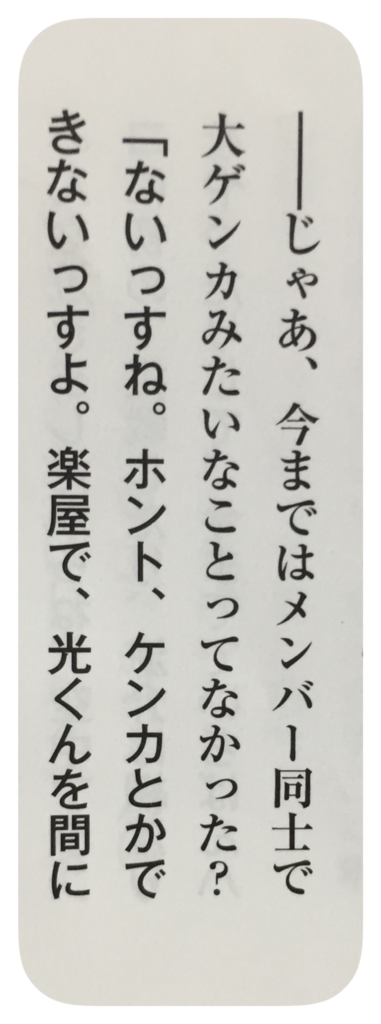 ――じゃあ、今まではメンバー同士で
大ゲンカみたいなことってなかった？
「ないっすね。ホント、ケンカとかで
きないっすよ。楽屋で、光くんを間に